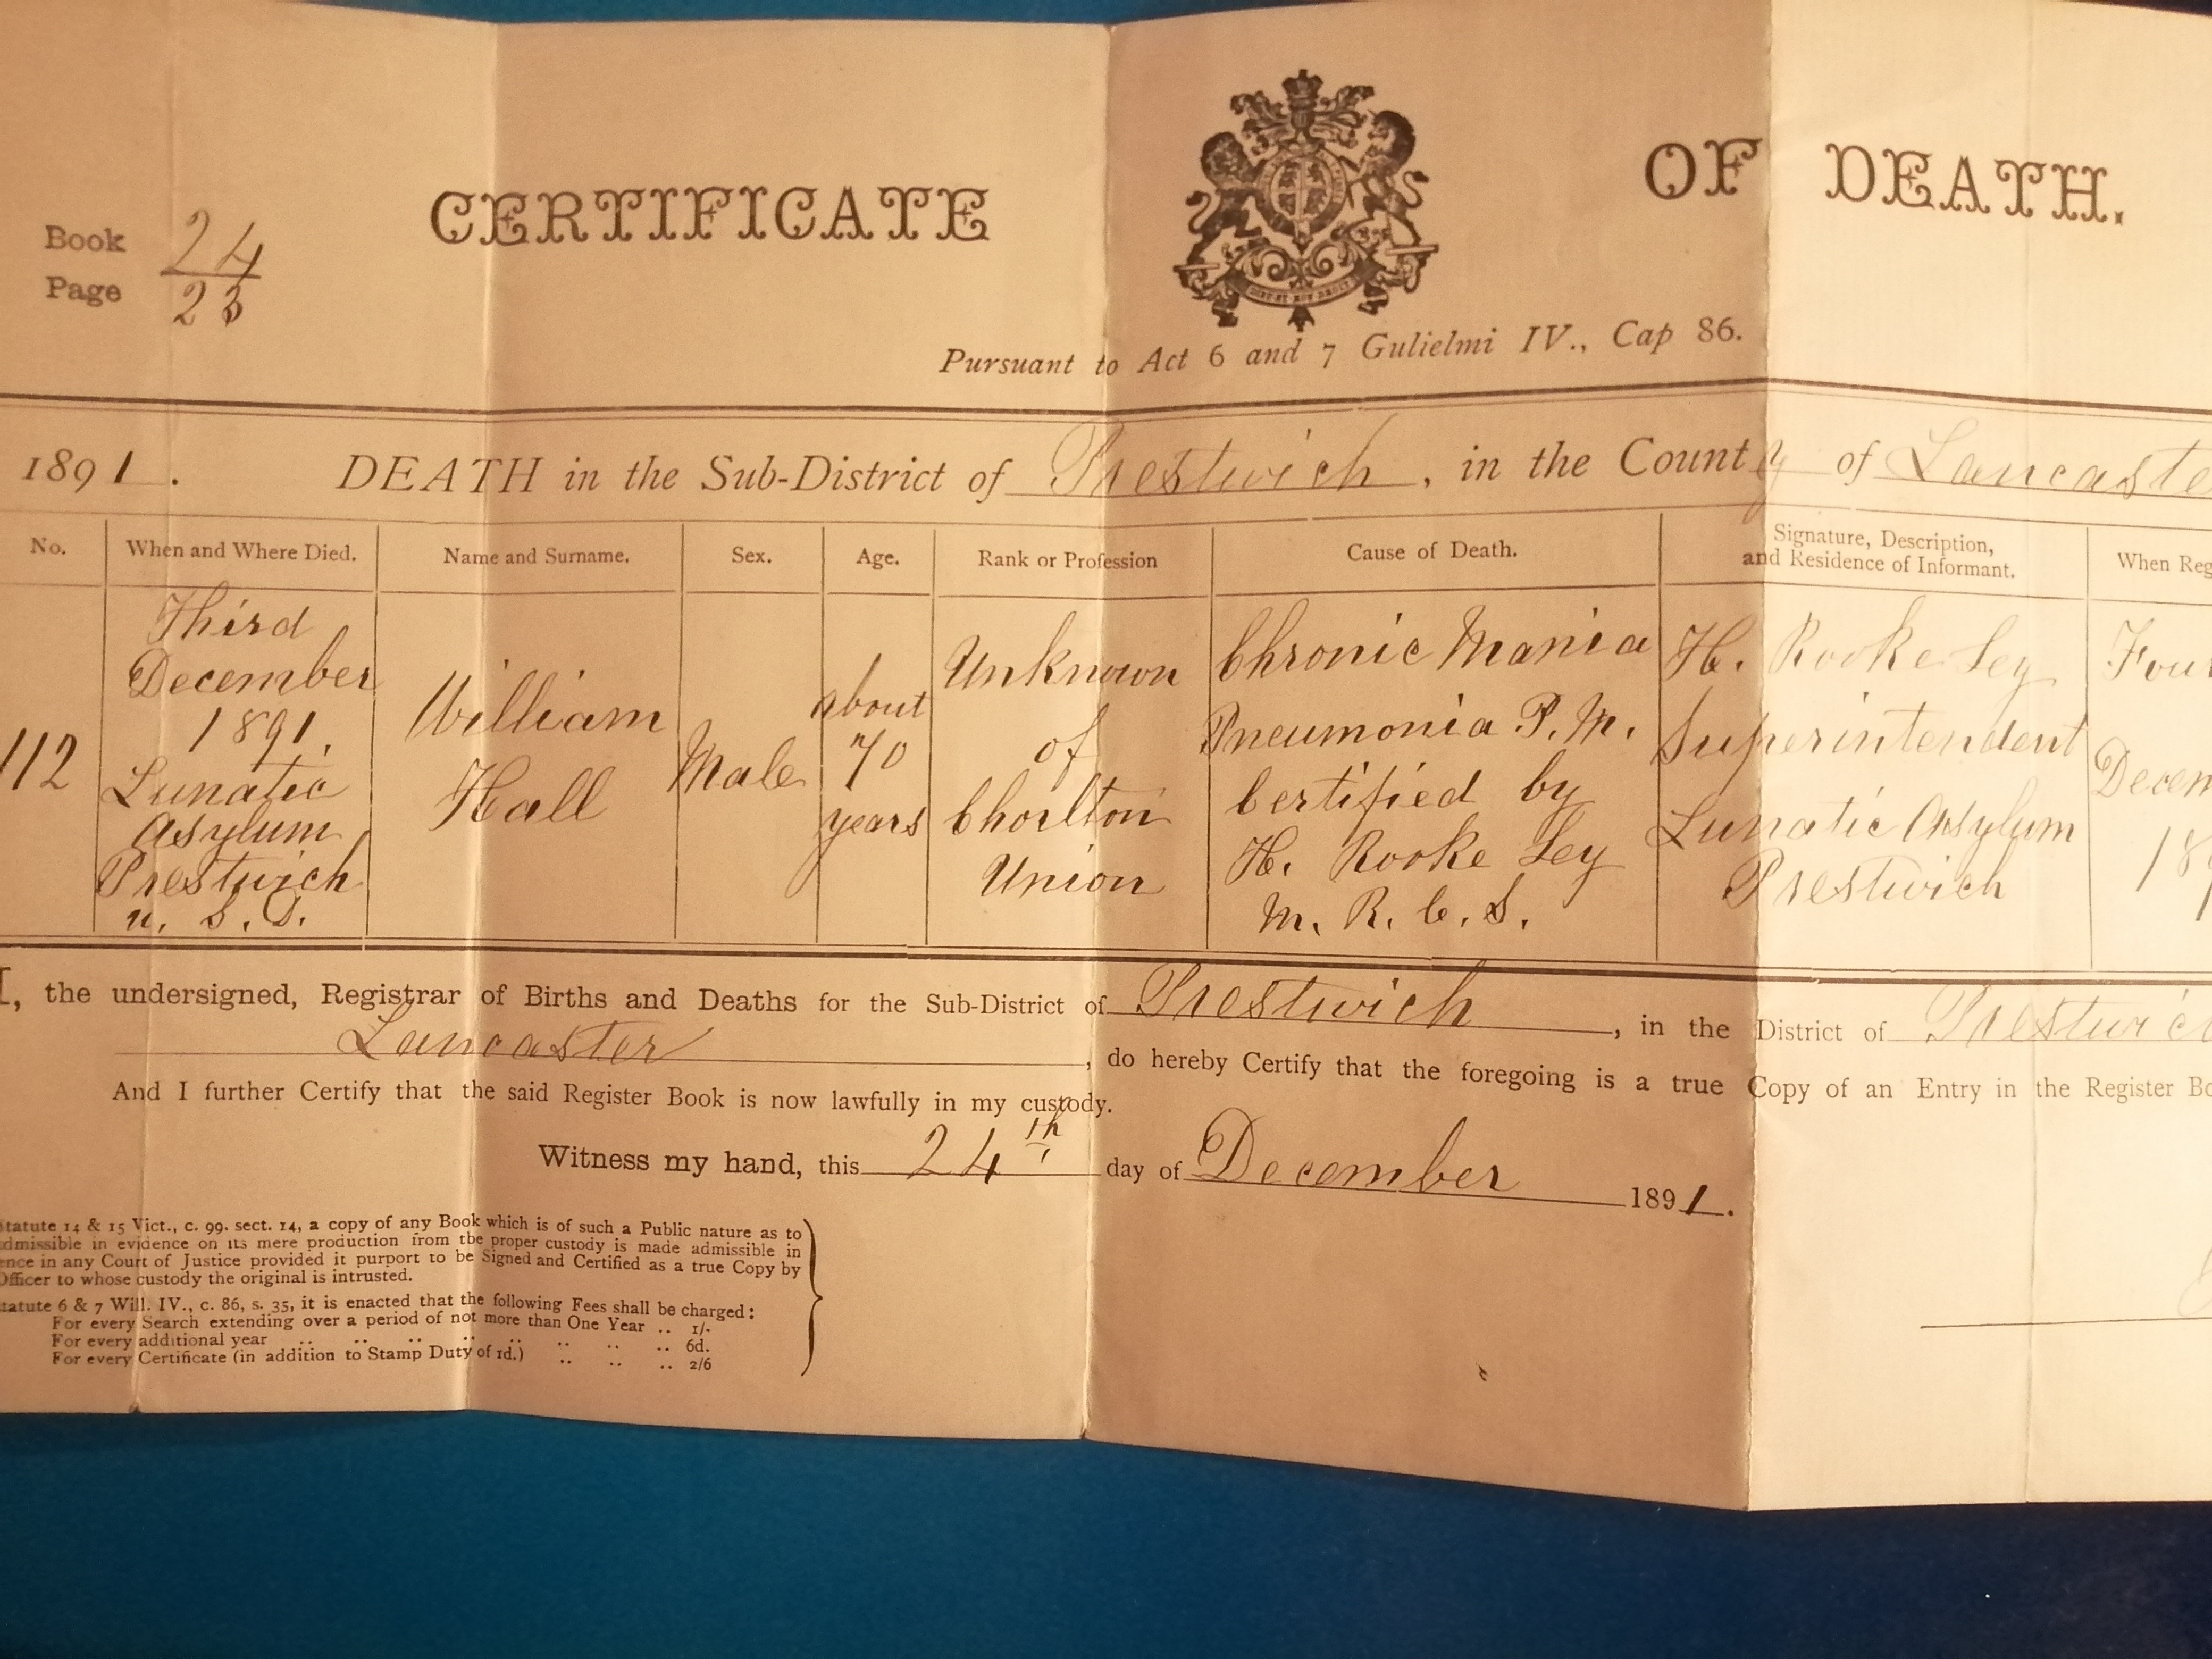 CERTIFICATE OF DEATH.
Book 24
Page 23
Pursuant to Act 6 and 7 Gulielmi IV., Cap 86.
1891. DEATH in the Sub-District of Prestwich, in the County of Lancaste
No.
When and Where Died.
Name and Surname.
Sex.
Age.
Rank or Profession
Cause of Death.
Signature, Description,
and Residence of Informant.
When Reg
112
Third
December
1891.
Lunatic
Asylum
Prestwich
U. S. D.
William
Hall
Male
about
70
years
Unknown
of
Chorlton
Union
Chronic Mania
Pneumonia P. M.
Certified by
H. Rooke Ley
M. R. C. S.
H. Rooke Ley
Superintendent
Lunatic Asylum
Prestwich
Four
Decem
189
I, the undersigned, Registrar of Births and Deaths for the Sub-District of Prestwich, in the District of Prestwic
Lancaster, do hereby Certify that the foregoing is a true Copy of an Entry in the Register Bo
And I further Certify that the said Register Book is now lawfully in my custody.
Witness my hand, this 24th day of December 1891.
tatute 14 & 15 Vict., c. 99. sect. 14, a copy of any Book which is of such a Public nature as to
dmissible in evidence on its mere production from the proper custody is made admissible in
ence in any Court of Justice provided it purport to be Signed and Certified as a true Copy by
Officer to whose custody the original is intrusted.
tatute 6 & 7 Will. IV., c. 86, s. 35, it is enacted that the following Fees shall be charged:
For every Search extending over a period of not more than One Year .. 1/-
For every additional year .. .. .. .. .. .. .. .. 6d.
For every Certificate (in addition to Stamp Duty of 1d.) .. .. .. 2/6